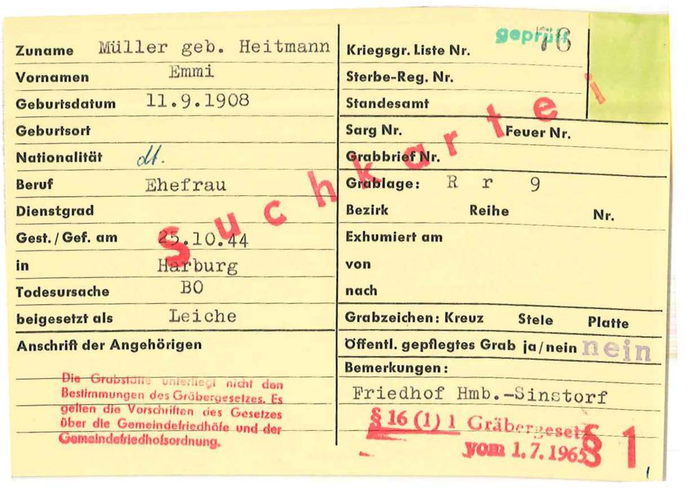 Zuname Müller geb. Heitmann
Vornamen Emmi
Geburtsdatum 11.9.1908
Geburtsort
Nationalität dt.
Beruf Ehefrau
Dienstgrad
Gest./Gef. am 25.10.44
in Harburg
Todesursache BO
beigesetzt als Leiche
Anschrift der Angehörigen
Die Grabstätte unterliegt nicht den
Bestimmungen des Gräbergesetzes. Es
gelten die Vorschriften des Gesetzes
über die Gemeindefriedhöfe und der
Gemeindefriedhofsordnung.
Suchkartei
geprüft
Kriegsgr. Liste Nr. 76
Sterbe-Reg. Nr.
Standesamt
Sarg Nr. Feuer Nr.
Grabbrief Nr.
Grablage: R r 9
Bezirk Reihe Nr.
Exhumiert am
von
nach
Grabzeichen: Kreuz Stele Platte
Öffentl. gepflegtes Grab ja/nein nein
Bemerkungen:
Friedhof Hmb.-Sinstorf
§ 16 (1) 1 Gräbergesetz
vom 1.7.1965
§ 1